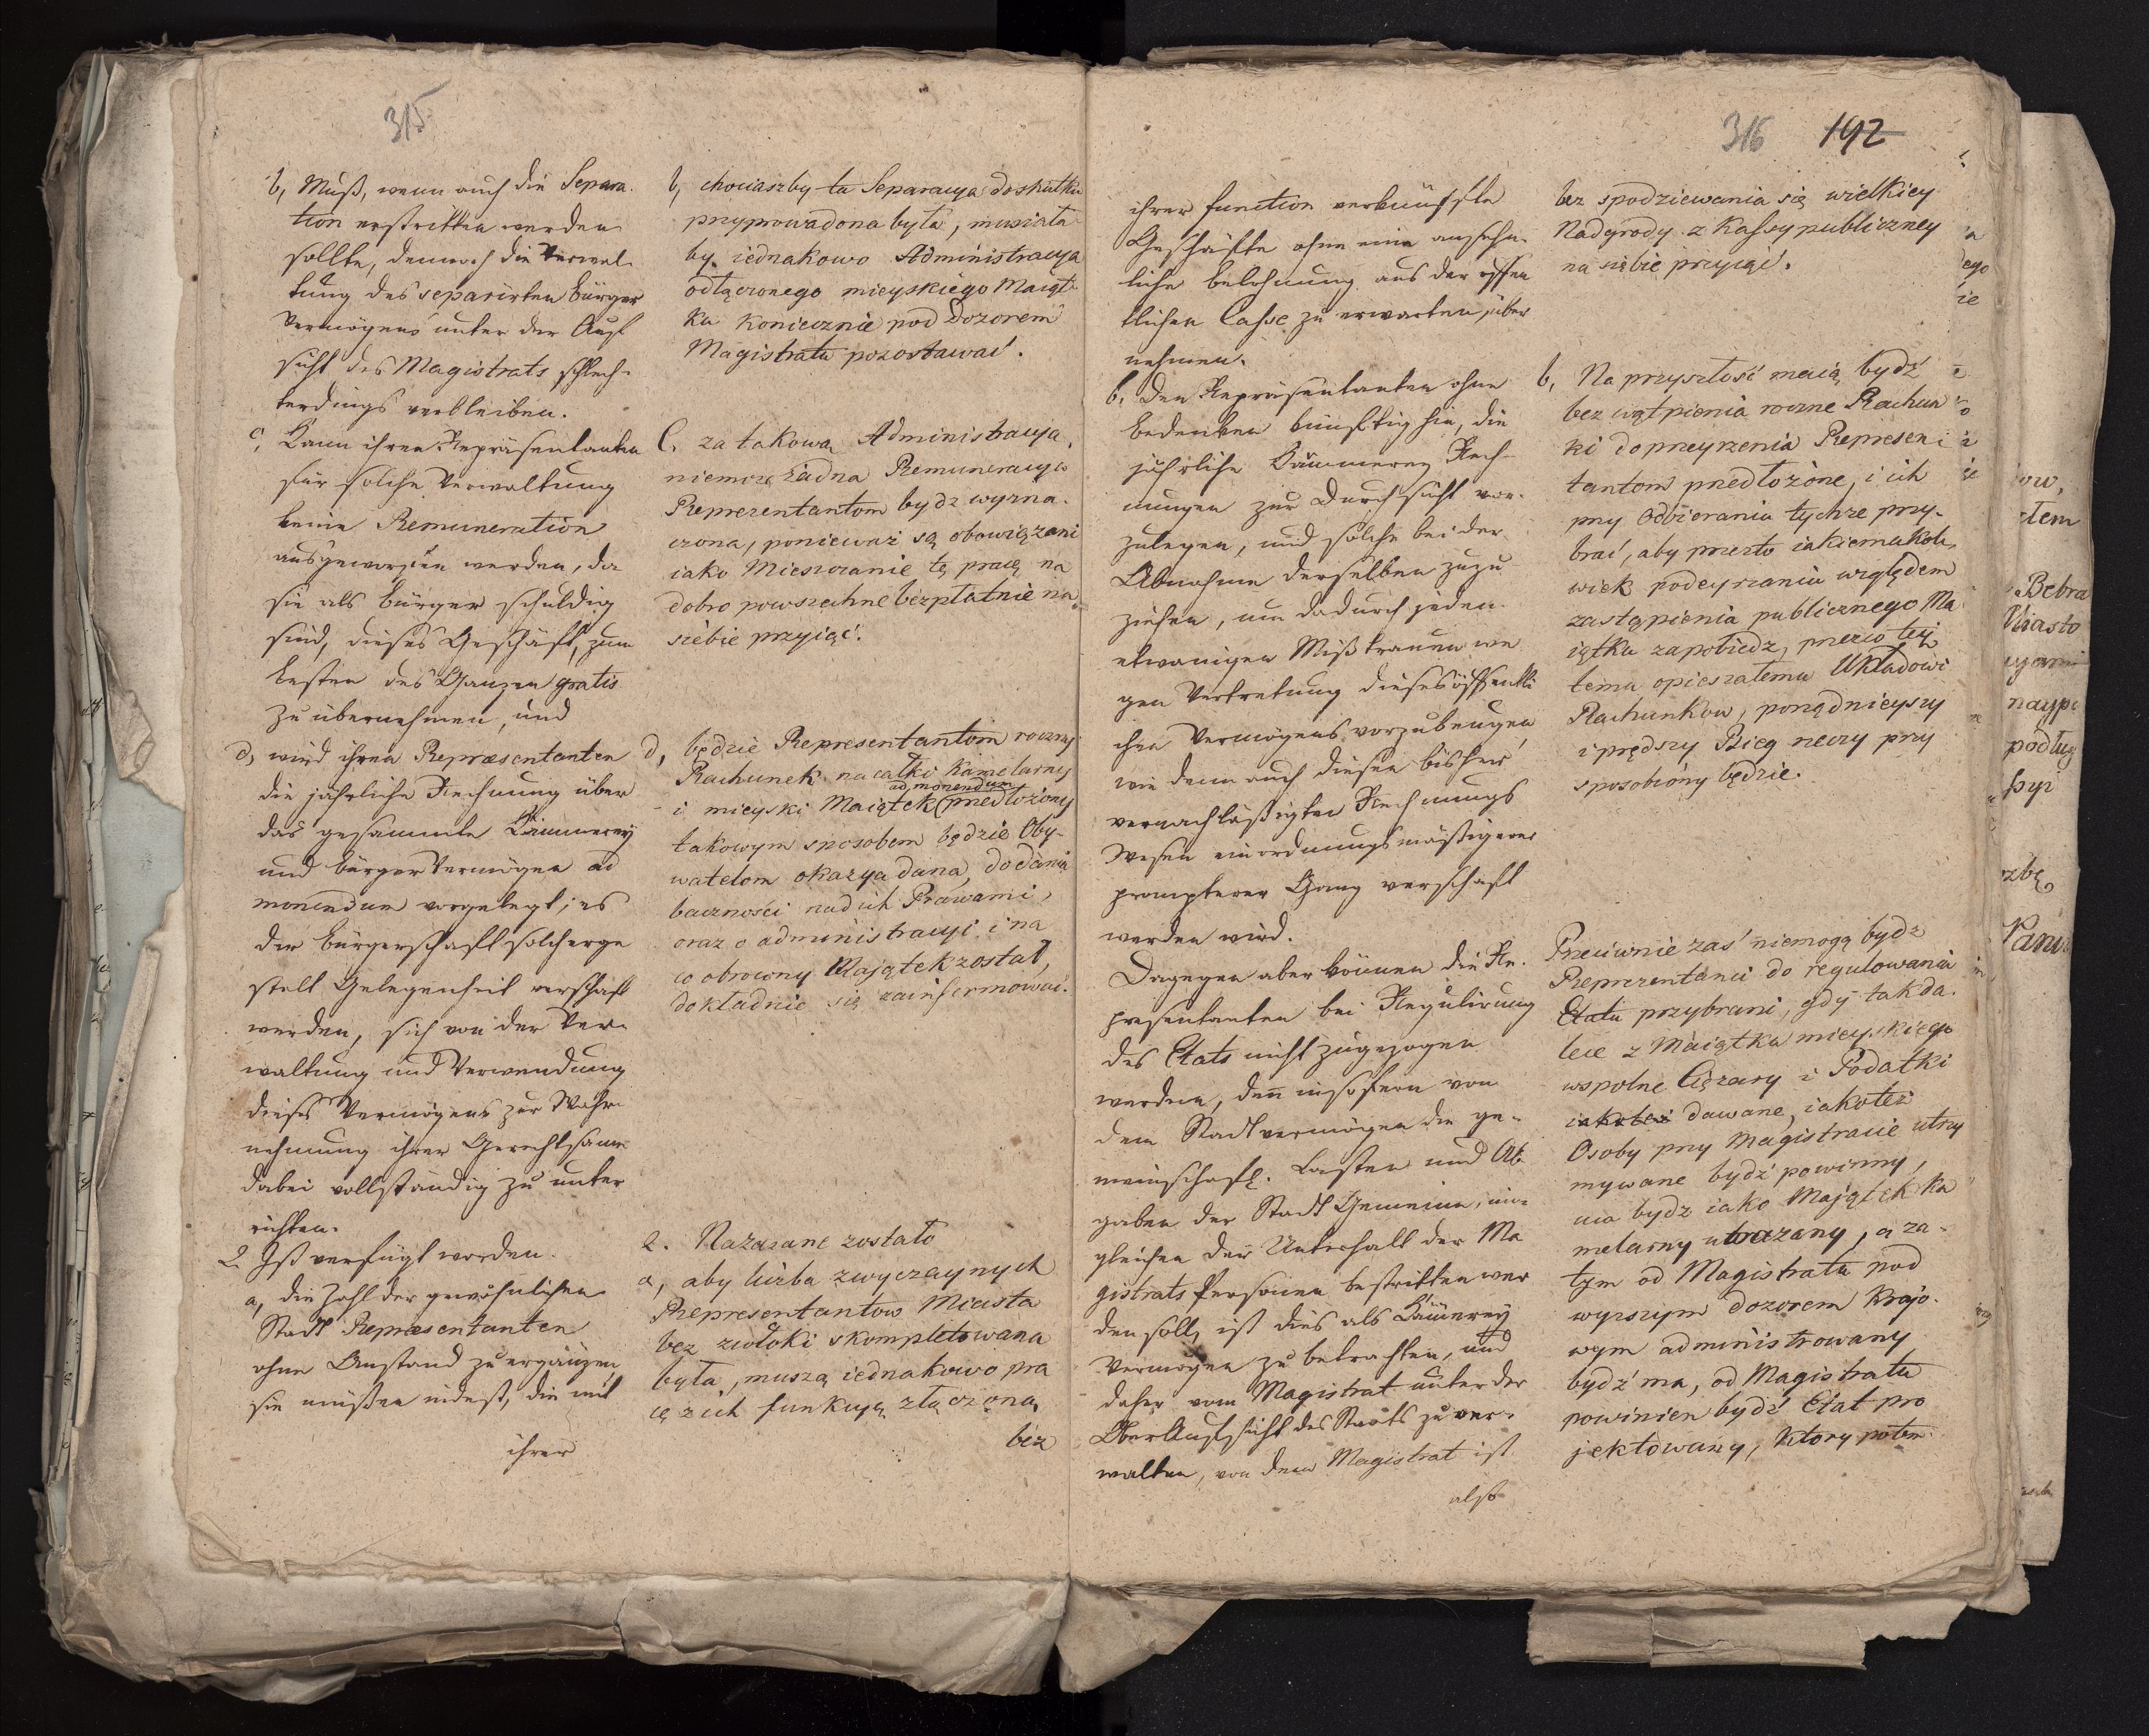 315
b, Muß, wenn auch die Separa-
tion erstritten werden
sollte, dennoch die Verwal-
tung des separirten Bürger
Vermögens unter der Auf
sicht des Magistrats schlech-
terdings verbleiben.
c, Kann ihren Repräsentanten
für solche Verwaltung
keine Remuneration
ausgeworfen werden, da
sie als Bürger schuldig
sind, dieses Geschäft, zum
besten des Ganzen gratis
zu übernehmen, und
d, wird ihren Repraesentanten
die jährliche Rechnung über
das gesammte Kämmerey
und Bürger Vermögen ad
monendum vorgelegt; es
der Bürgerschaft solcherge
stalt Gelegenheit verschaft
werden, sich von der Ver-
waltung und Verwendung
dieses Vermögens zur Wahr-
nehmung ihrer Gerechtsame
dabei vollständig zu unter
richten.
2. Ist verfügt worden.
a, die Zahl der gewöhnlichen
Stadt Repraesentanten
ohne Anstand zu ergänzen,
sie müßen indeß, die mit
ihrer
b, chociaszby ta Separacya do skutku
przyprowadzona była, musiała
by iednakowo Administracya
odłączonego mieyskiego Maiąt-
ku koniecznie pod Dozorem
Magistratu pozostawać.
C. za takową Administracyą,
niemoże żadna Remuneracya
Reprezentantom bydz wyzna-
czona, ponieważ są obowiązani
iako Mieszczanie tę pracę na
dobro powszechne bezpłatnie na
siebie przyiąć.
d, będzie Representantom roczny
Rachunek na całki Kamelarny
ad monendum
i mieyski Maiątek przedłożony
takowym sposobem będzie Oby-
watelom okazya dana, do dania
baczności nad ich Prawami,
oraz o administracyi i na
co obrocony Majątek został,
dokładnie się zainformować.
2. Nakazane zostało
a, aby liczba zwyczaynych
Representantow Miasta
bez zwłoki skompletowana
była, muszą iednakowo pra
cę z ich funkcyą złączoną,
bez
316 192
ihrer function verknüpfte
Geschäfte ohne eine ansehn-
liche Belohnung aus der öffen
tlichen Casse zu erwarten, über
nehmen.
b, Den Repräsentanten ohne
Bedenken künftighin, die
jährliche Kämmerey Rech-
nungen zur Durchsicht vor-
zulegen, und solche bei der
Abnahme derselben zuzu
ziehen, um dadurch jeden
etwanigen Mißtrauen we
gen Vertretung dieses öffentli
chen Vermögens vorzubeugen,
wie denn auch diesen bisher
vernachläßigten Rechnungs
Wesen ein ordnungsmäßigerer
prompterer Gang verschaft
werden wird.
Dagegen aber können die Re-
praesentanten bei Regulirung
des Etats nicht zugezogen
werden, den insofern von
dem Stadtvermögen die ge-
meinschaftl. Lasten und Ab
gaben der Stadt Gemeine, im-
gleichen der Unterhalt der Ma
gistrats Personen bestritten wer
den soll, ist dies als Kämmerey
Vermögen zu betrachten, und
daher vom Magistrat unter der
Ober Aufsicht des Staats zu ver-
walten, von dem Magistrat ist
also
bez spodziewania się wielkiey
Nadgrody z Kassy publiczney
na siebie przyiąć.
b, Na przyszłość maią bydź
bez wątpienia roczne Rachun
ki do przeyrzenia Represen-
tantom przedłożone, i ich
przy Odbieraniu tychże przy-
brać, aby przezto iakiemukol-
wiek podeyrzaniu względem
zastąpienia publicznego Ma
iątku zapobiedz, przezco też
temu opieszałemu Układowi
Rachunkow, porządnieyszy
i prędszy Bieg rzeczy przy
sposobiony będzie.
Przeciwnie zaś niemogą bydz
Reprezentanci do regulowania
Etatu przybrani, gdy tak da-
lece z Maiątku mieyskiego
wspolne Ciężary i Podatki
iakoteż dawane, iakoteż
Osoby przy Magistracie utrzy
mywane bydź powinny,
ma bydz iako Majątek Ka
melarny uważany, a za-
tym od Magistratu pod
wyższym dozorem Krajo-
wym administrowany
bydź ma, od Magistratu
powinien bydź Etat pro
jektowany, ktory potem